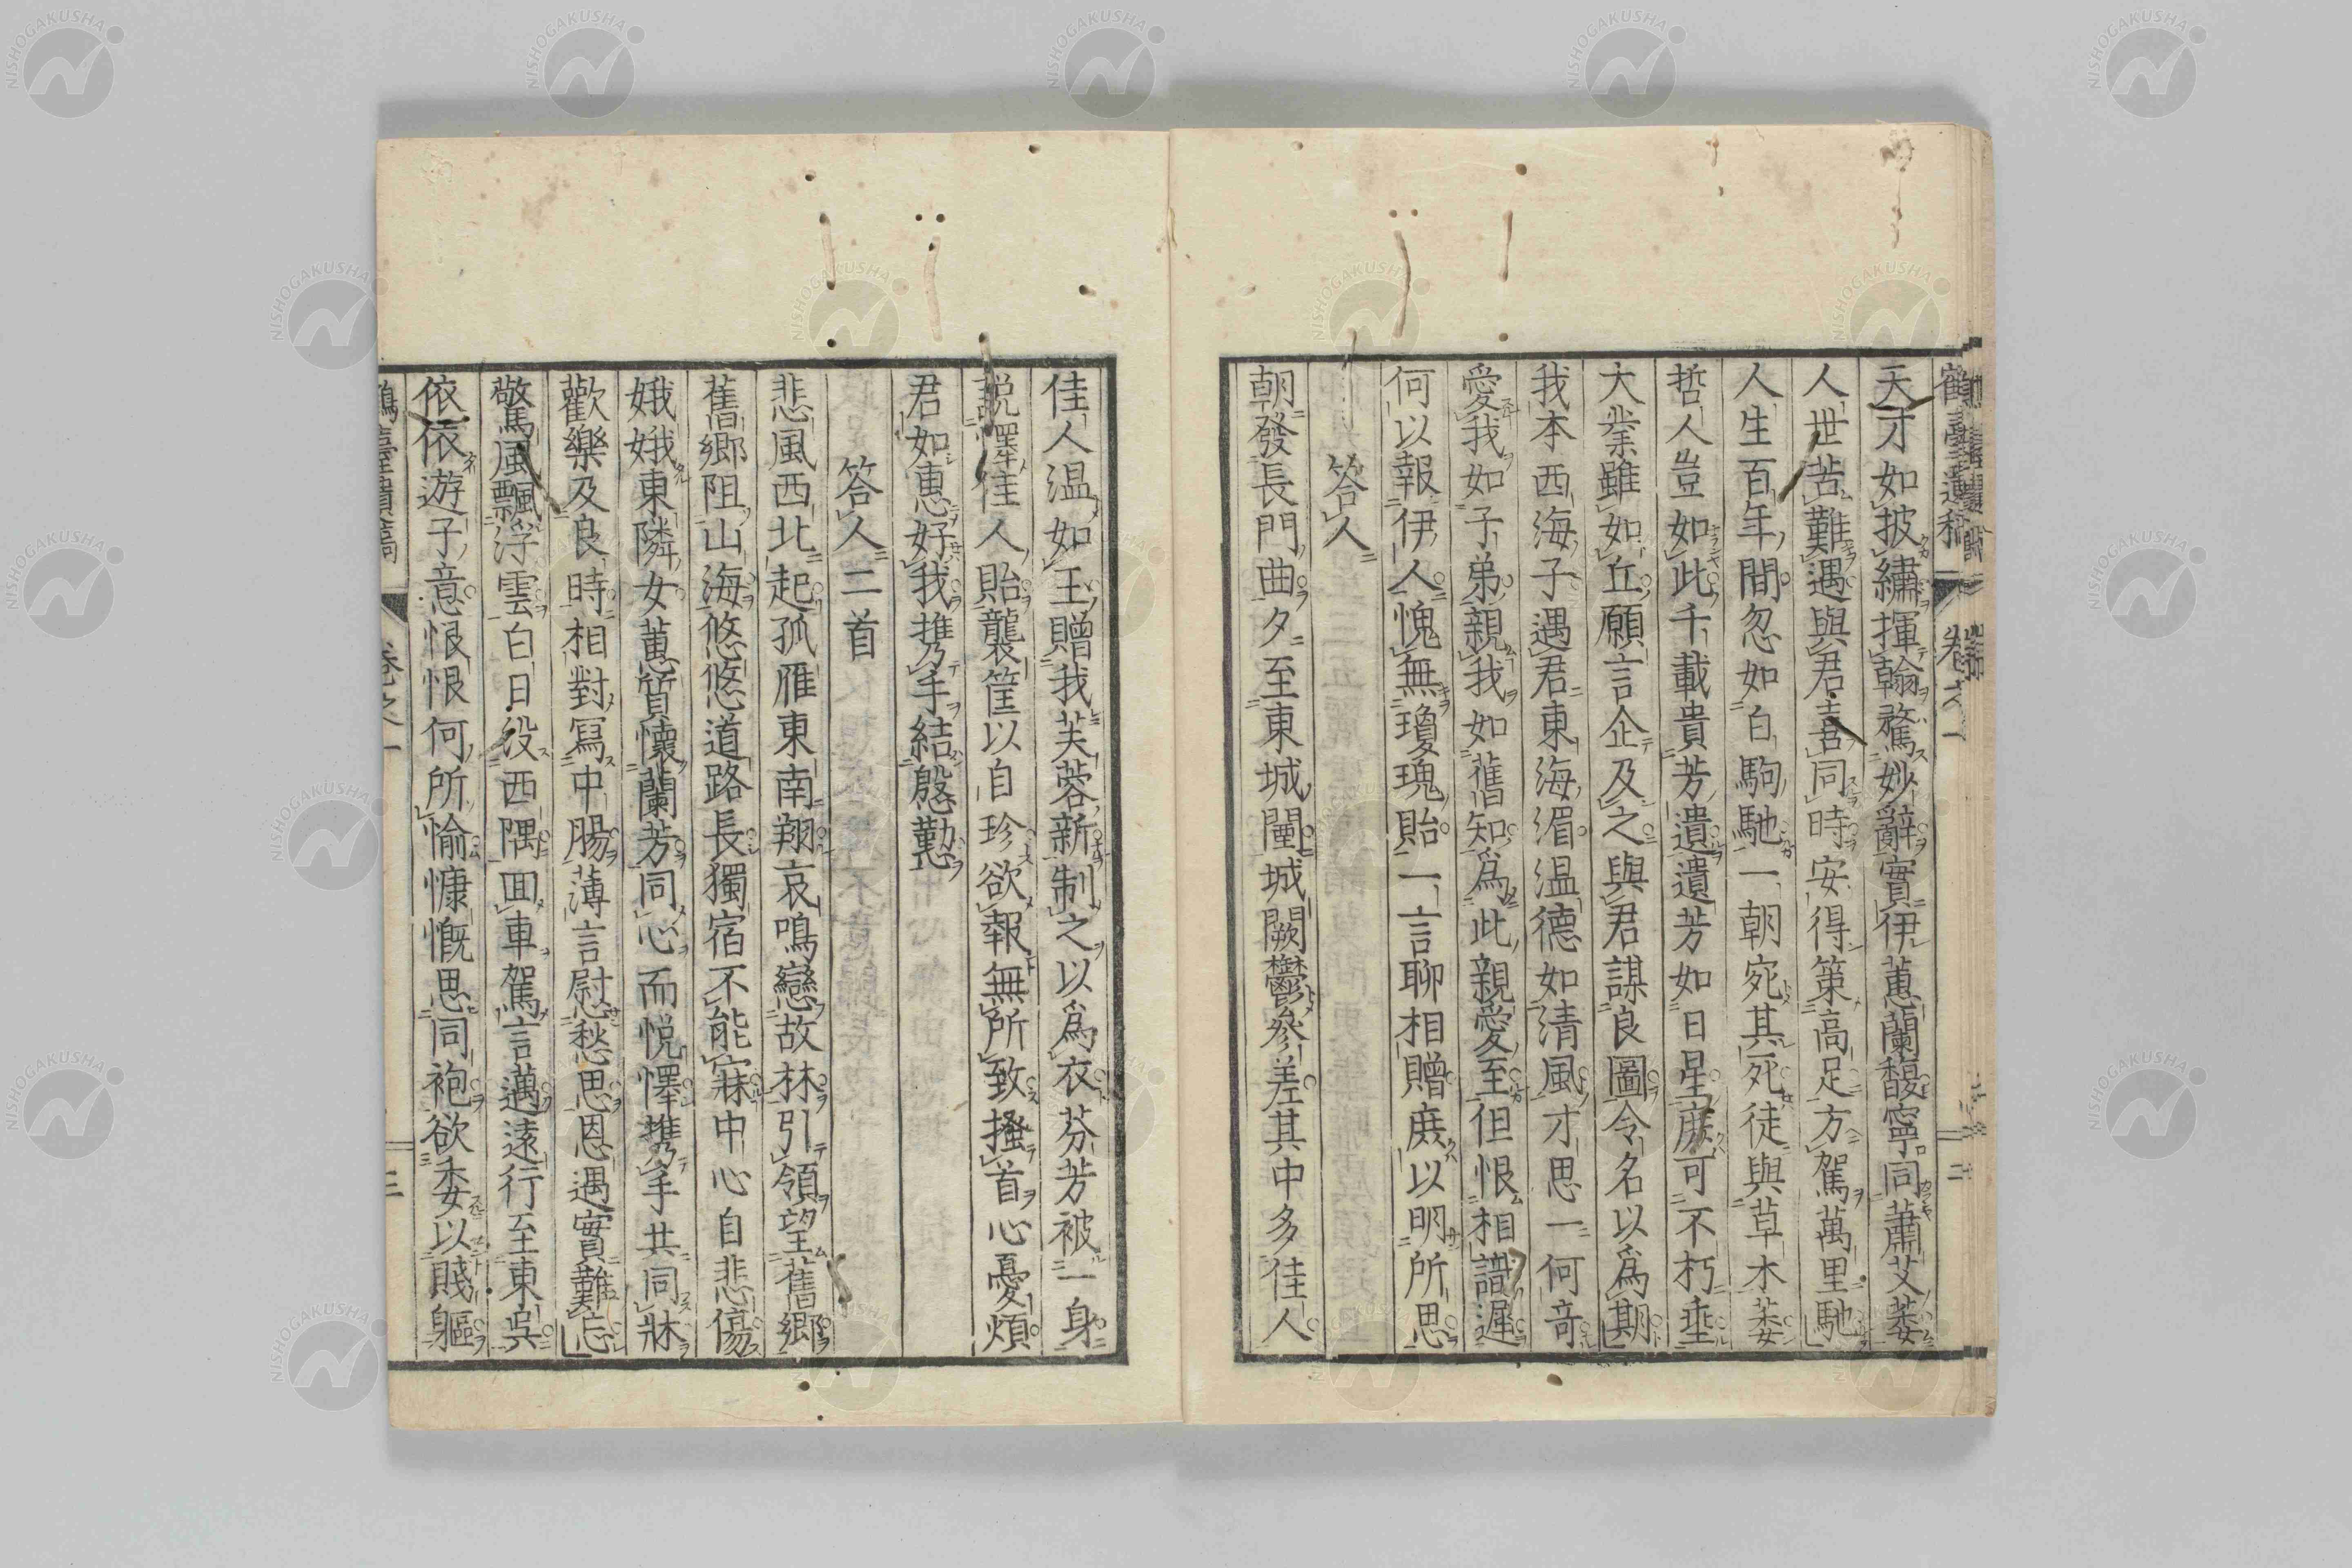 天才如披繡揮翰騖妙辭實伊蕙蘭馥寧同蕭艾萎
人世苦難遇與君喜同時安得策高足方駕萬里馳
人生百年間忽如白駒馳一朝宛其死徒與草木萎
哲人豈如此千載貴芳遺遺芳如日星庶可不朽垂
大業雖如丘願言企及之與君謀良圖令名以爲期
我本西海子遇君東海湄温德如清風才思一何奇
愛我如子弟親我如舊知爲此親愛至但恨相識遲
何以報伊人愧無瓊瑰貽一言聊相贈庶以明所思
答人
朝發長門曲夕至東城闉城闕鬱參差其中多佳人
佳人温如玉贈我芙蓉新制之以爲衣芬芳被一身
說懌佳人貽襲筐以自珍欲報無所致搔首心憂煩
君如惠好我携手結慇懃
答人二首
悲風西北起孤雁東南翔哀鳴戀故林引領望舊鄉
舊鄉阻山海悠悠道路長獨宿不能寐中心自悲傷
娥娥東隣女蕙質懷蘭芳同心而悅懌携手共同牀
歡樂及良時相對寫中腸薄言慰愁思恩遇實難忘
驚風飄浮雲白日役西隅回車駕言邁遠行至東吳
依依遊子意恨恨何所愉慷慨思同袍欲委以賤軀